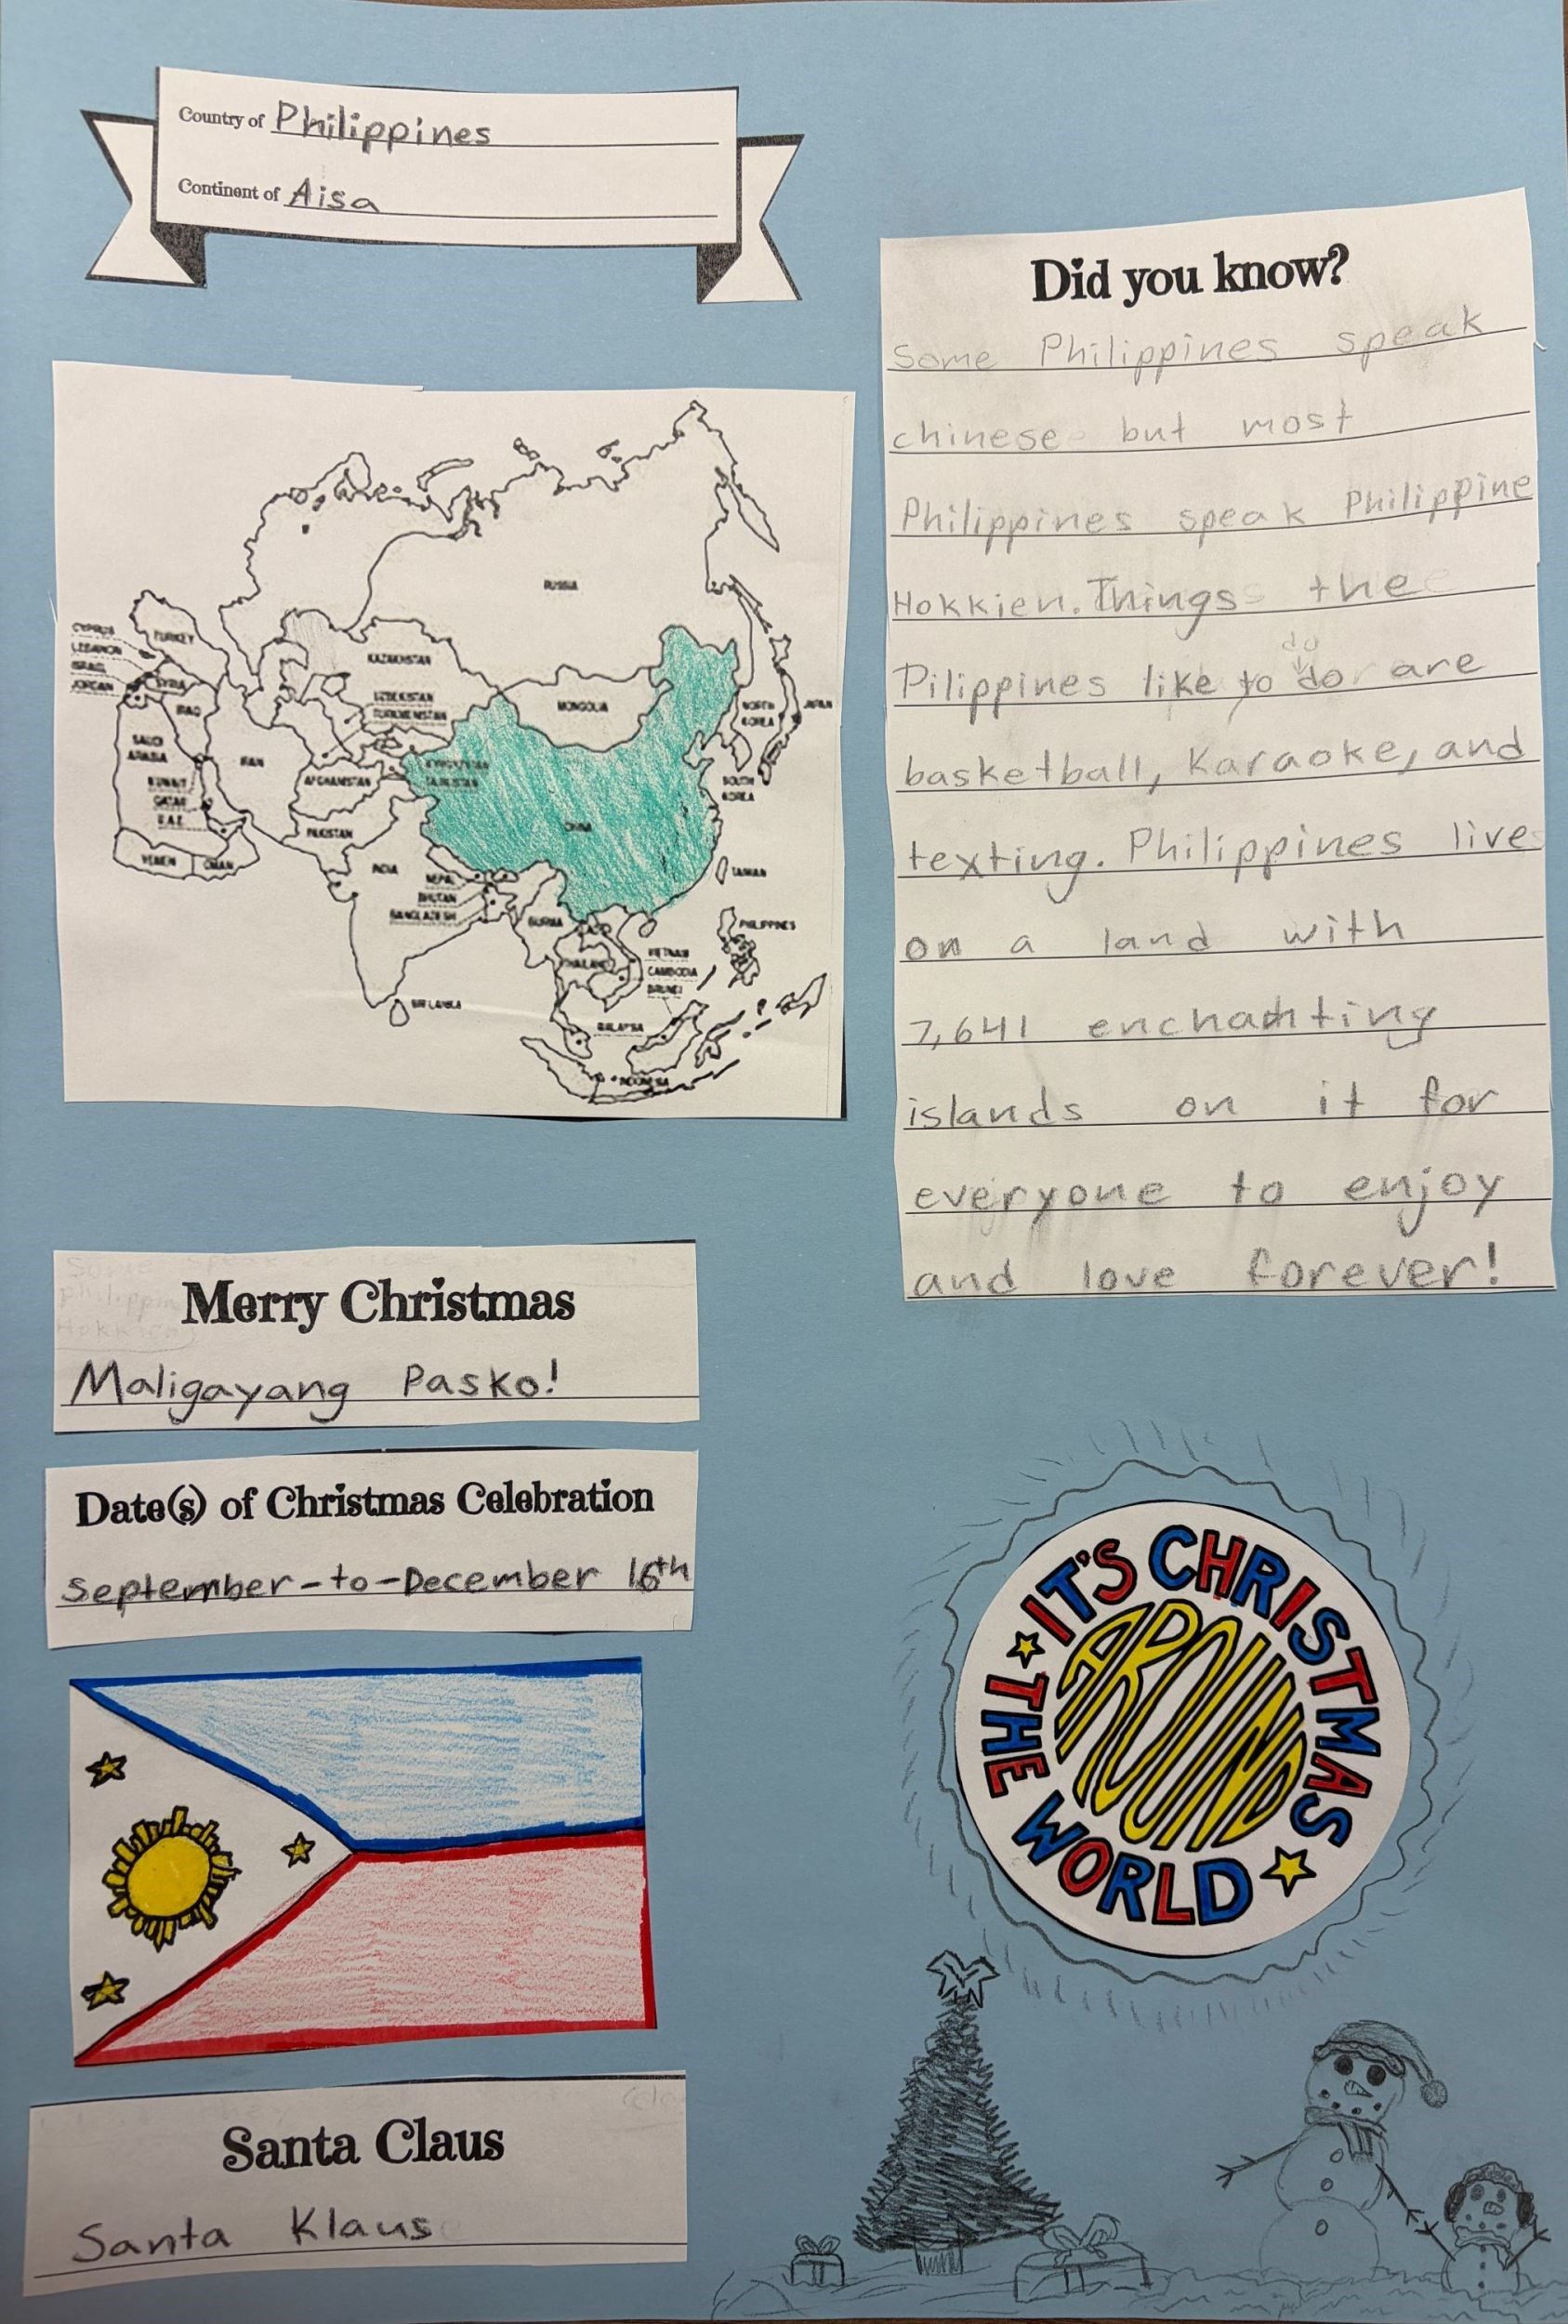 Country of Philippines
Continent of Aisa
Did you know?
Some Philippines speak
chinese but most
Philippines speak Philippine
Hokkien. Things the
do
Pilippines like to do are
basketball, Karaoke, and
texting. Philippines live
on a land with
7,641 enchanting
islands on it for
everyone to enjoy
and love forever!
RUSSIA
CYPRUS
LEBANON
ISRAEL
JORDAN
TURKEY
SYRIA
IRAQ
KAZAKHSTAN
UZBEKISTAN
TURKMENISTAN
MONGOLIA
NORTH
KOREA
JAPAN
SAUDI
ARABIA
IRAN
KYRGYZSTAN
TAJIKISTAN
AFGHANISTAN
KUWAIT
QATAR
U.A.E.
SOUTH
KOREA
CHINA
PAKISTAN
YEMEN
OMAN
INDIA
NEPAL
BHUTAN
BANGLADESH
TAIWAN
BURMA
LAOS
PHILIPPINES
THAILAND
VIETNAM
CAMBODIA
BRUNEI
SRI LANKA
MALAYSIA
INDONESIA
Merry Christmas
Maligayang Pasko!
Date(s) of Christmas Celebration
September-to-December 16th
IT'S CHRISTMAS
AROUND
THE WORLD
Santa Claus
Santa Klaus